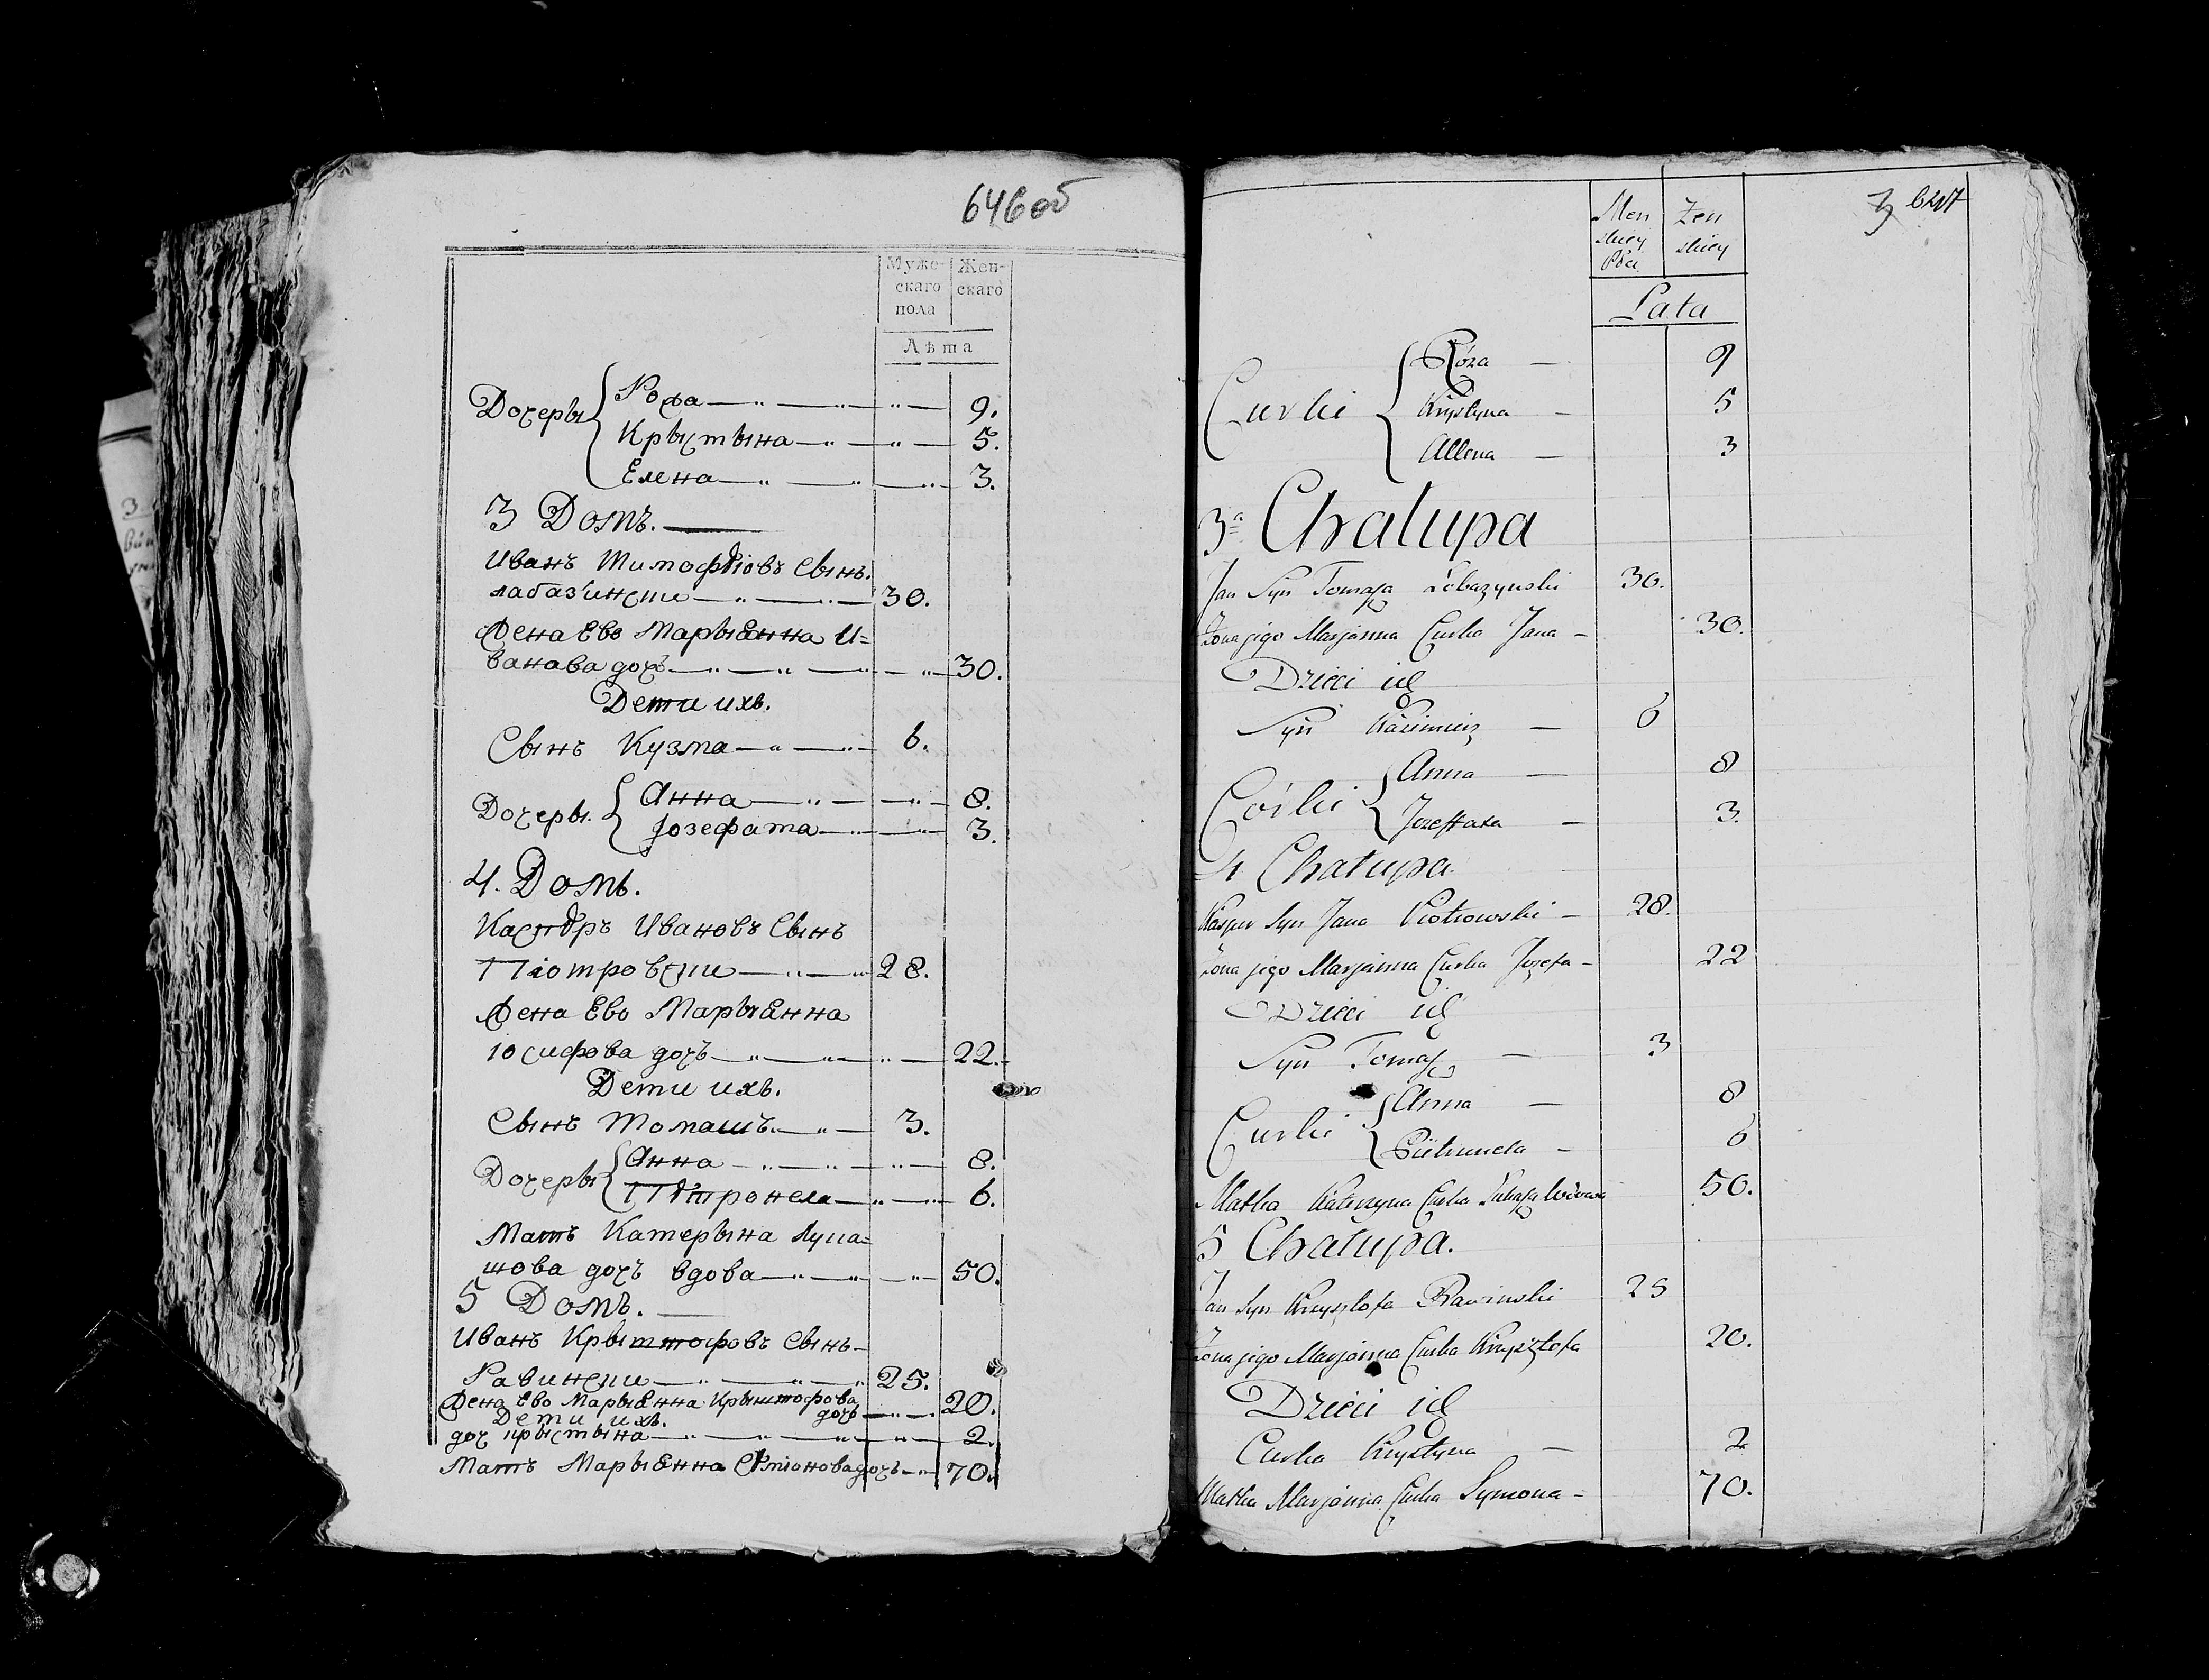 646об
Муже-
скаго
пола
Жен-
скаго
Лѣта
Дочеры
Рожа 9.
Крыстына 5.
Елена 3.
3 Домъ.
Иванъ Тимофѣіовъ Сынъ
лабазински 30.
Жена Ево Марыянна И=
ванава дочъ 30.
Дети ихъ.
Сынъ Кузма 6.
Дочеры
Анна 8.
Јозефата 3.
4. Домъ.
Каспѣръ Ивановъ Сынъ
Піотровски 28.
Жена Ево Марыянна
Юсифова дочъ 22.
Дети ихъ.
Сынъ Томашъ 3.
Дочеры
Анна 8.
Пѣтронела 6.
Мать Катерына Лука=
шова дочъ вдова 50.
5 Домъ.
Иванъ Крыштофовъ Сынъ
Равински 25.
Жена Ево Марыянна Крыштофова
дочъ 20.
Дети ихъ.
доч крыстына 2.
Мать Марыянна Сѣміонова дочъ 70.
Men
skiey
Płci
Zen
skiey
Lata
Curki
Róza 9
Krystyna 5
Allena 3
3a Chalupa
Jan Syn Tomasza Łobazynski 30.
Zona jego Marjanna Curka Jana 30.
Dzieci ich
Syn Kazimierz 6
Córki
Anna 8
Jozeffata 3.
4 Chalupa.
Kasper Syn Jana Piotrowski 28.
Zona jego Marjanna Curka Jozefa 22
Dzieci ich
Syn Tomasz 3
Curki
Anna 8
Pietrunela 6
Matka Katerzyna Curka Łukasza Wdowa 50.
5 Chalupa.
Jan Syn Krzysztofa Rawinski 25
Zona jego Marjanna Curka Krzysztofa 20.
Dzieci ich
Curka Krystyna 2
Matka Marjanna Curka Symona 70.